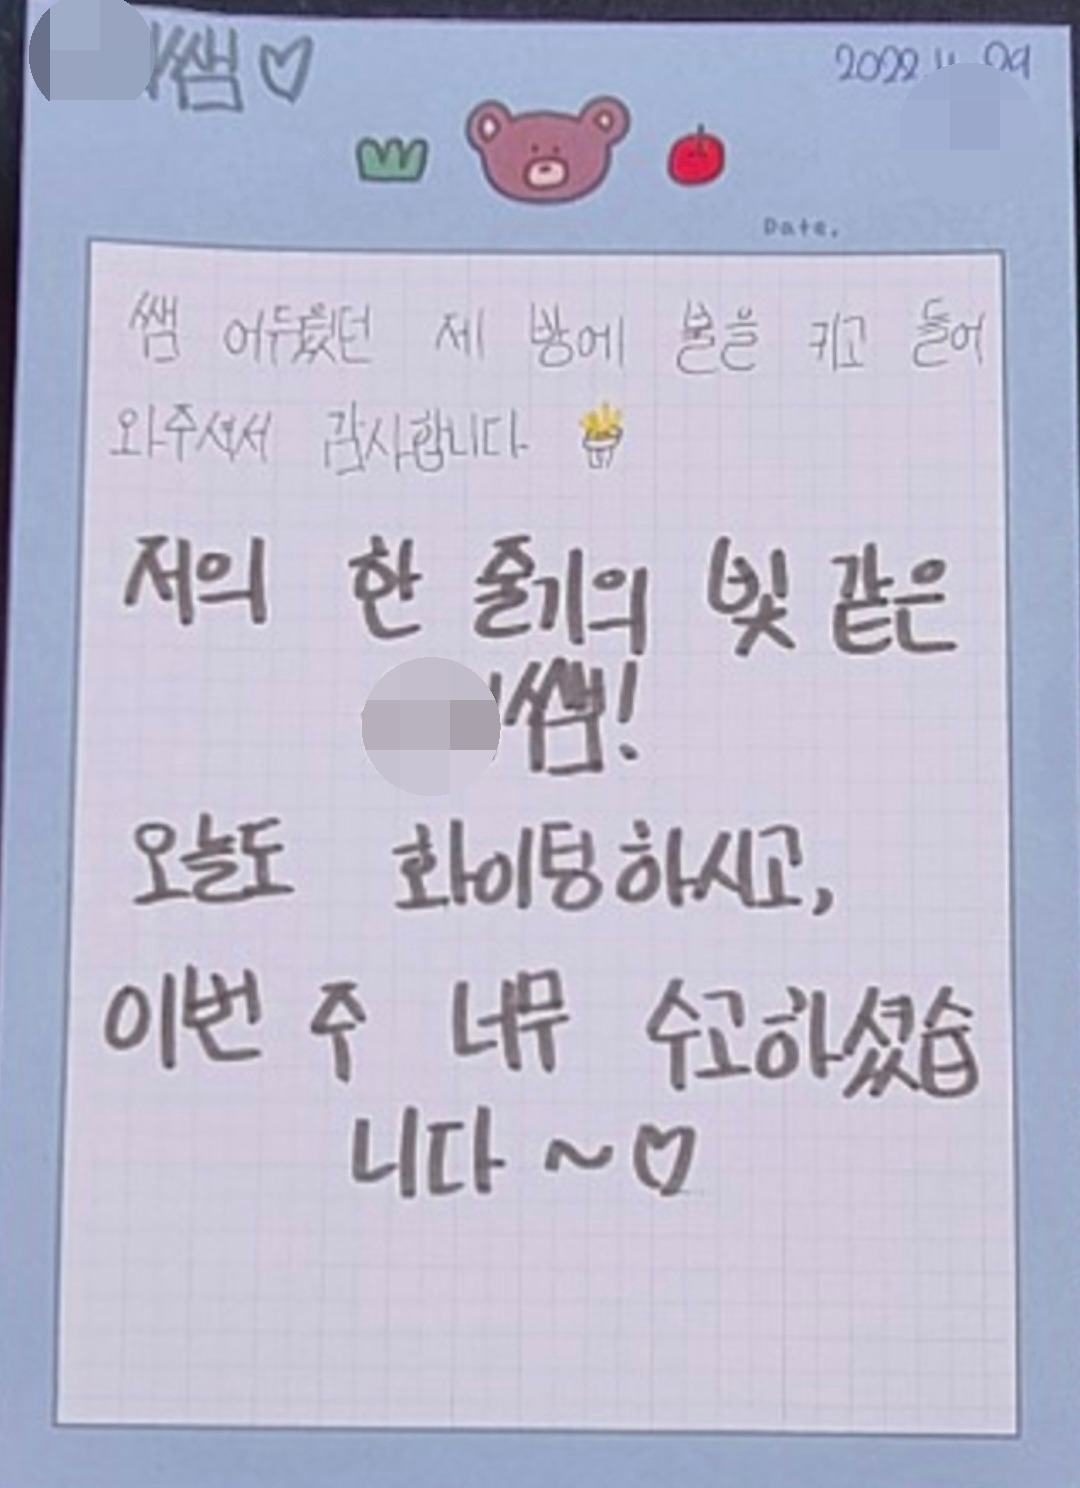 쌤 ♡
2022.11.29
Date.
쌤 어두웠던 제 방에 불을 키고 들어
와주셔서 감사합니다
저의 한 줄기의 빛 같은
쌤!
오늘도 화이팅하시고,
이번 주 너무 수고하셨습
니다~♡